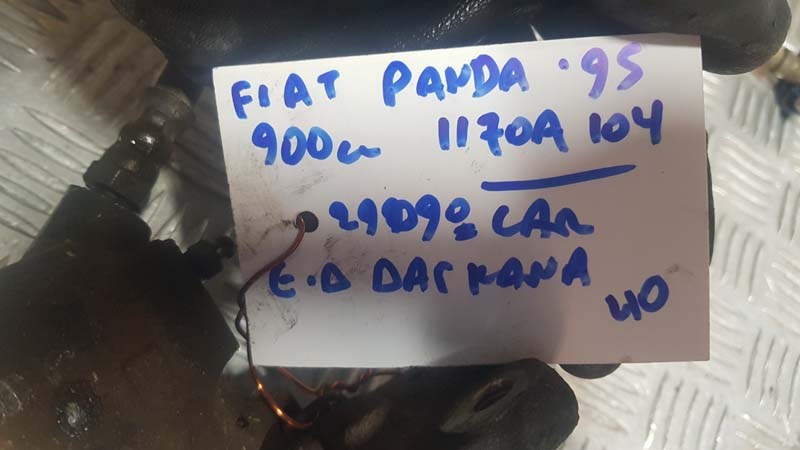 FIAT PANDA '95
900cc 1170A 104
CAR
E.D DAPKANA
40